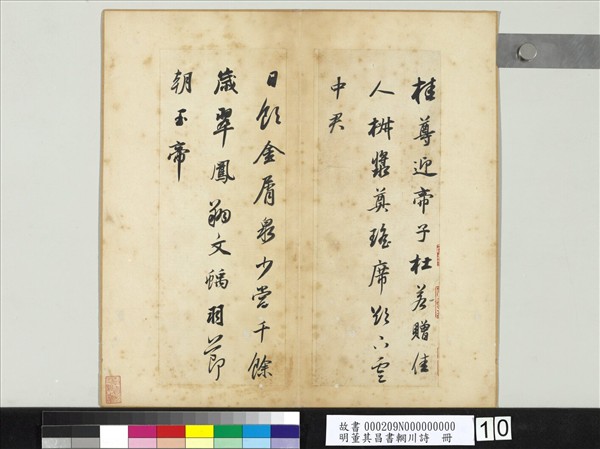 桂尊迎帝子杜若贈佳
人椒漿奠瑤席欲下雲
中君
日飲金屑泉少當千餘
歲翠鳳翔文螭羽節
朝玉帝
故書 000209N000000000
明董其昌書輞川詩 冊
10